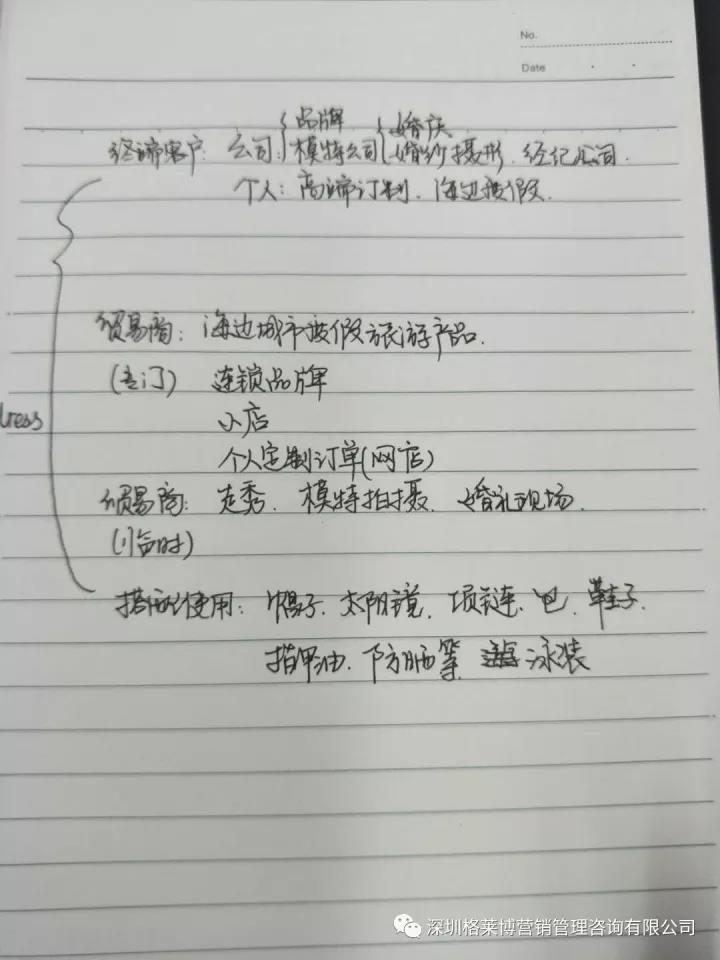 No.
Date
品牌
婚庆
终端客户: 公司: 模特公司 婚纱摄形、经纪公司.
个人: 高端订制、海边度假.
贸易商: 海边城市度假旅游产品.
(专订) 连锁品牌
dress
小店
个人定制订单(网店)
贸易商: 走秀、模特拍摄、婚礼现场.
(临时)
搭配使用: 帽子、太阳镜、项链、包、鞋子、
指甲油、防晒等 泳装
深圳格莱博营销管理咨询有限公司